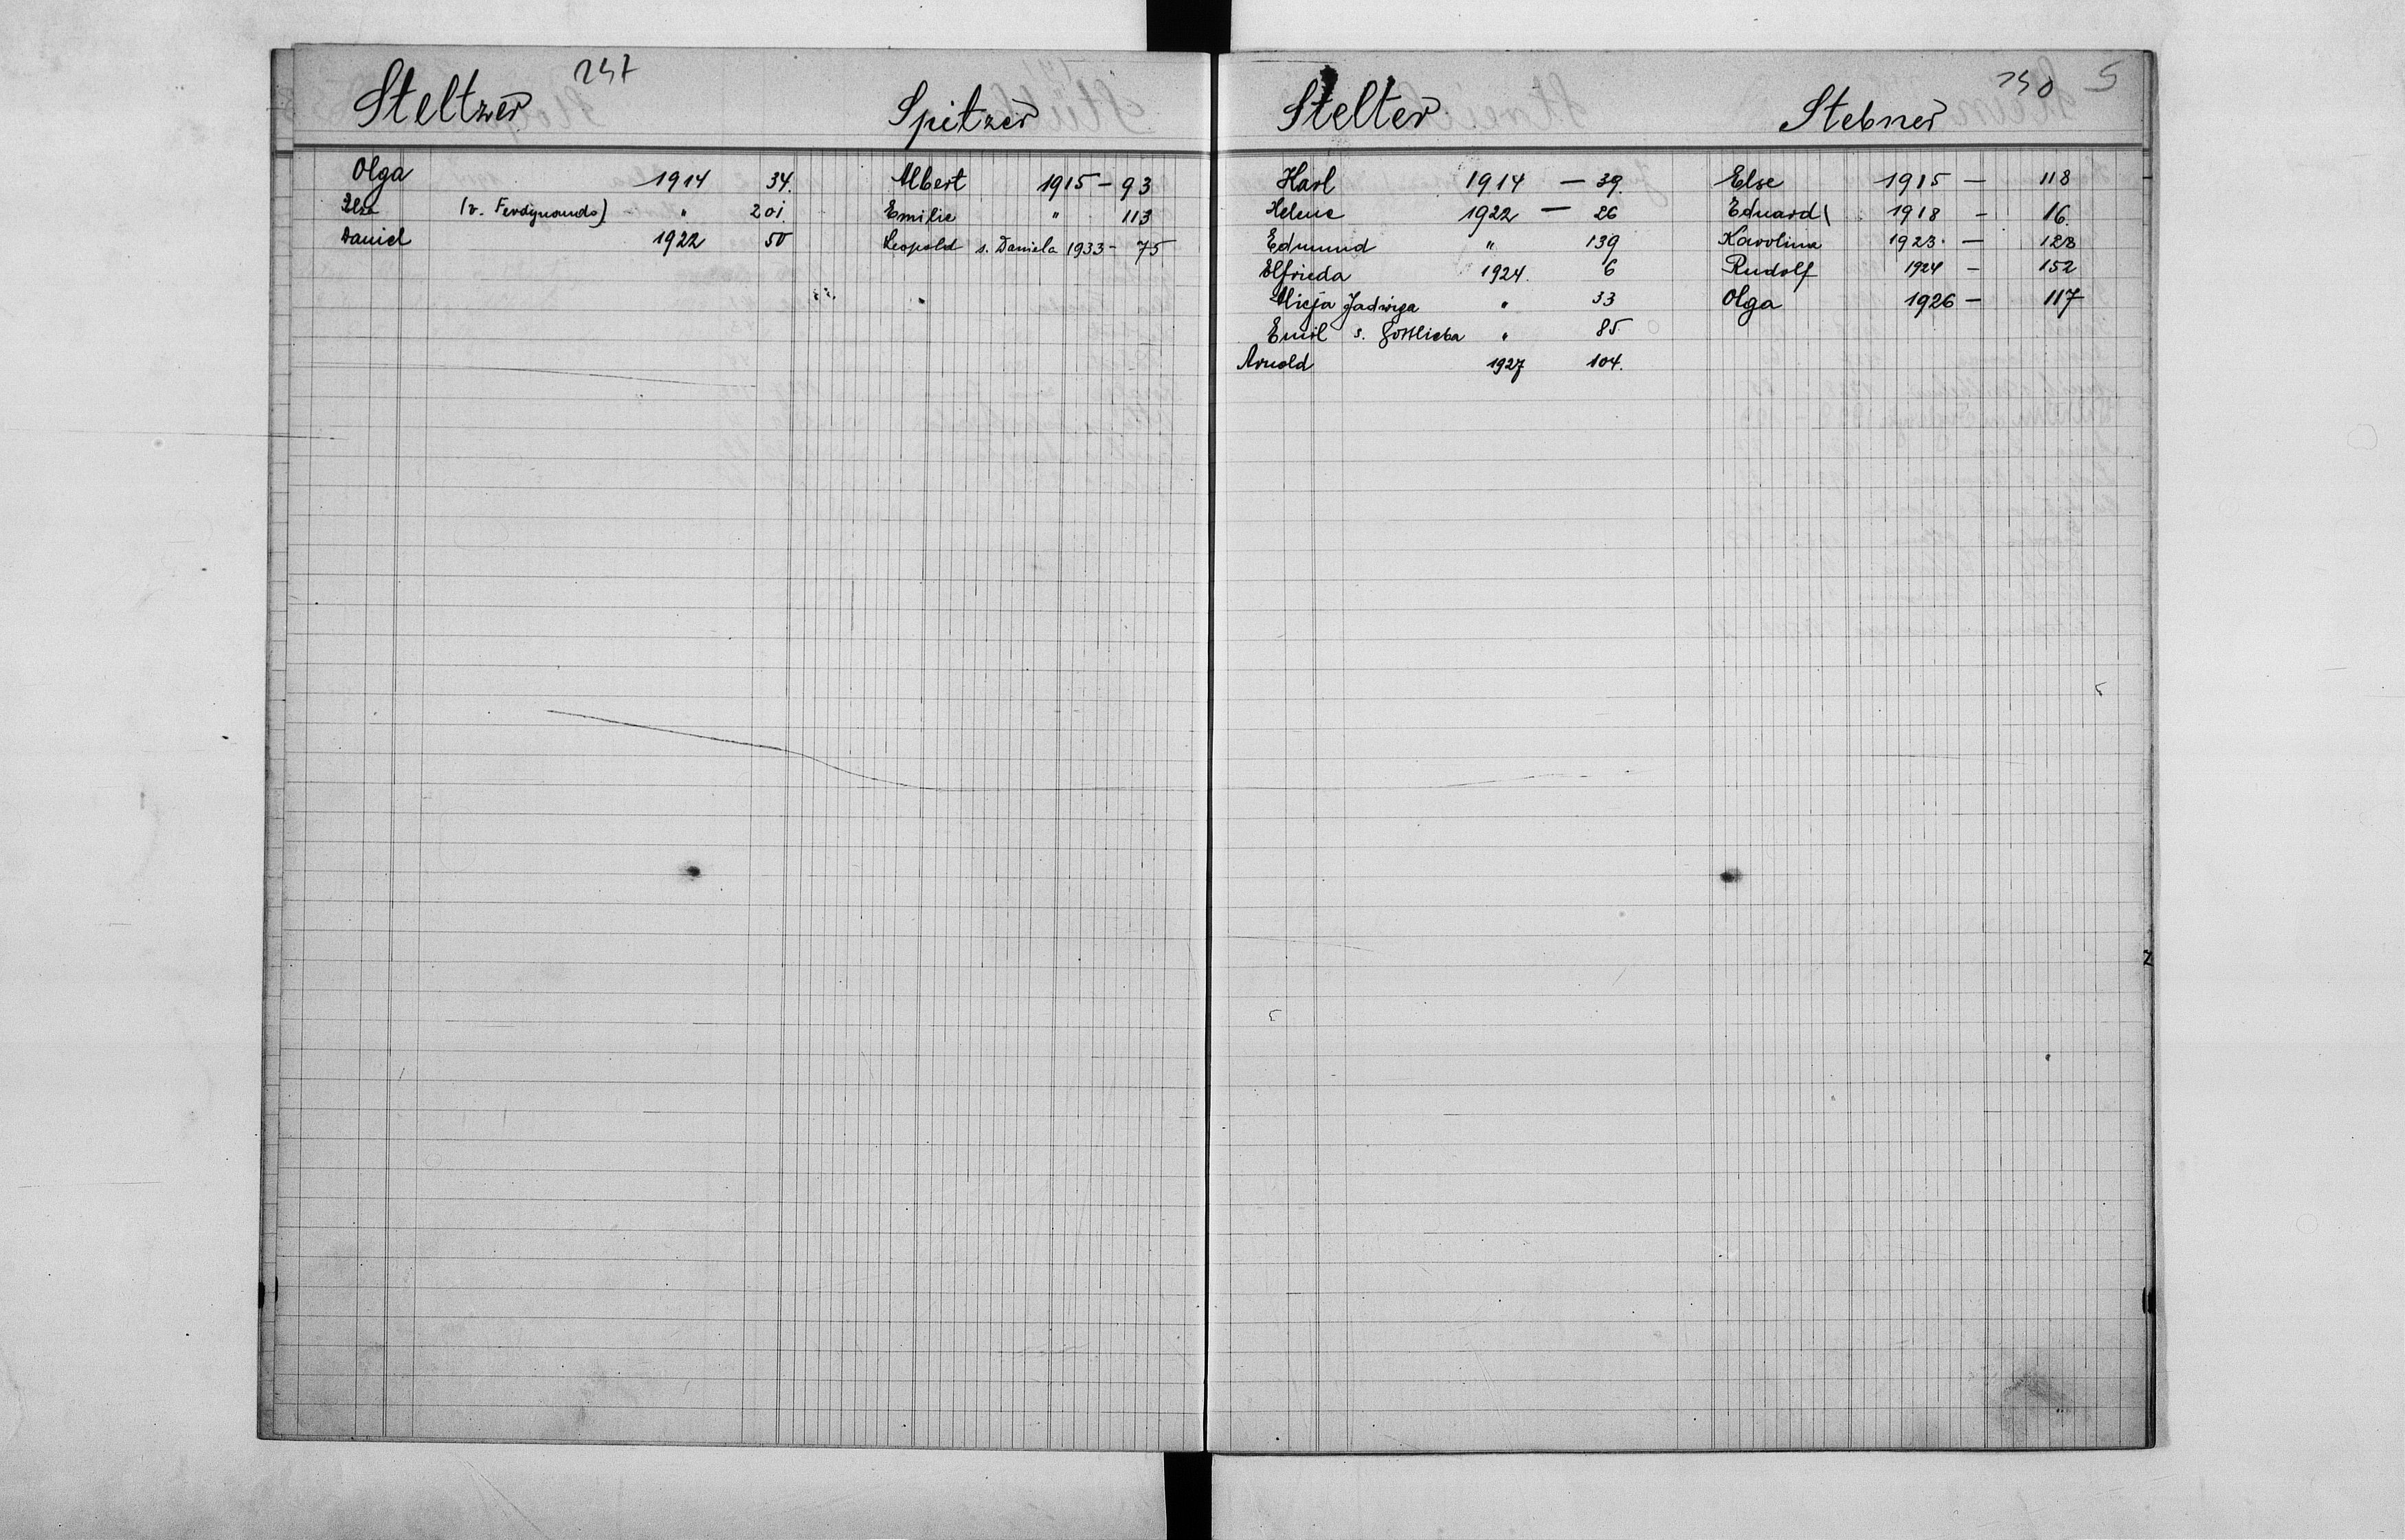 Steltzer 247
Olga 1914 34.
Elsa (v. Ferdynanda) " 201.
Daniel 1922 50
Spitzer
Albert 1915 - 93
Emilie " 113
Leopold s. Daniela 1933 - 75
Stelter
Karl 1914 — 39.
Helene 1922 — 26
Edmund " 139
Elfrieda 1924. 6
Alicja Jadwiga " 33
Emil s. Gottlieba " 85
Arnold 1927 104.
Stebner S
Else 1915 — 118
Eduard 1918 - 16.
Karolina 1923. — 128
Rudolf 1924 - 152
Olga 1926 - 117